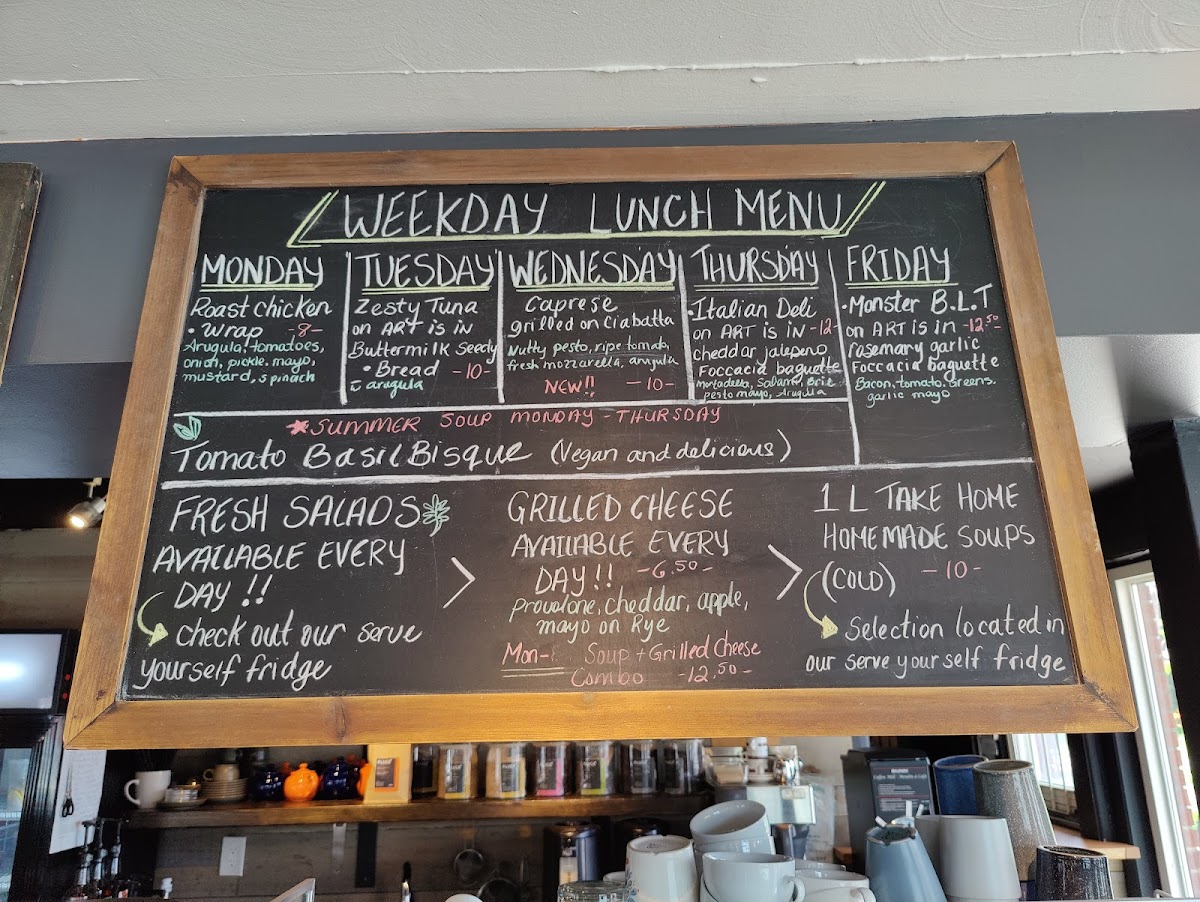 WEEKDAY LUNCH MENU
MONDAY
Roast chicken
• wrap -8-
Arugula, tomatoes,
onion, pickle, mayo,
mustard, spinach
TUESDAY
Zesty Tuna
on ART is in
Buttermilk Seedy
• Bread -10-
arugula
WEDNESDAY
Caprese
grilled on Ciabatta
Nutty pesto, ripe tomato,
fresh mozzarella, arugula
NEW!! -10-
THURSDAY
• Italian Deli
on ART is in -12-
cheddar jalepeno
Foccacia baguette
motadella, Salami, Brie
pesto mayo, Arugula
FRIDAY
• Monster B.L.T
on ART is in -12.50-
rosemary garlic
Foccacia baguette
Bacon, tomato, greens,
garlic mayo
SUMMER SOUP MONDAY - THURSDAY
Tomato Basil Bisque (Vegan and delicious)
FRESH SALADS
AVAILABLE EVERY
DAY !!
check out our serve
yourself fridge
GRILLED CHEESE
AVAILABLE EVERY
DAY!! -6.50-
provolone, cheddar, apple,
mayo on Rye
Mon- Soup + Grilled Cheese
Combo -12.50-
1 L TAKE HOME
HOMEMADE SOUPS
(COLD) -10-
Selection located in
our serve yourself fridge